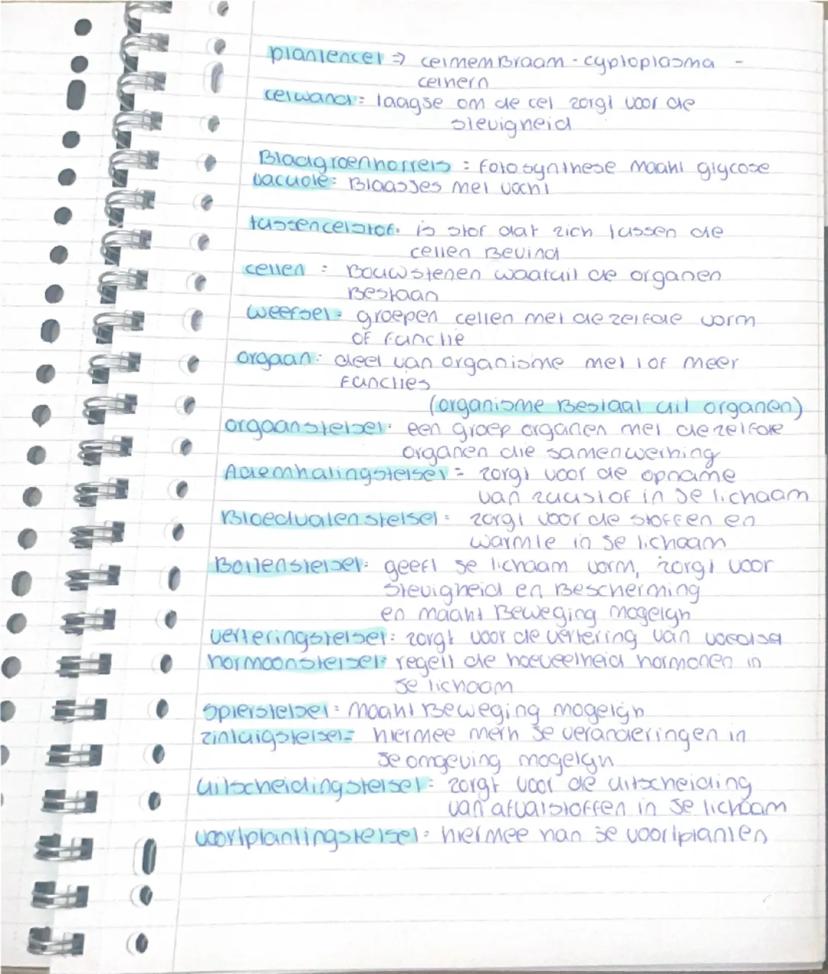 plantencel => celmembraam - cyptoplasma -
celkern
celwand = laagje om de cel zorgt voor de
stevigheid
Bladgroenkorrels : fotosynthese maakt glycose
vacuole : Blaasjes met vocht
tussencelstof : is stof dat zich tussen de
cellen Bevind
cellen : Bouwstenen waaruit de organen
Bestaan
weefsel = groepen cellen met dezelfde vorm
of functie
orgaan : deel van organisme met 1 of meer
functies
(organisme Bestaat uit organen)
orgaanstelsel : een groep organen met dezelfde
organen die samenwerking
Ademhalingstelsel = zorgt voor de opname
van zuustof in je lichaam
Bloedvatenstelsel = zorgt voor de stoffen en
warmte in je lichaam
Bottenstelsel : geeft je lichaam vorm, zorgt voor
stevigheid en Bescherming
en maakt Beweging mogelijk
verteringstelsel : zorgt voor de vertering van voedsel
hormoonstelsel : regelt de hoeveelheid hormonen in
je lichaam
spierstelsel = maakt Beweging mogelijk
zintuigstelsel = hiermee merk je veranderingen in
je omgeving mogelijk
Uitscheidingstelsel : zorgt voor de uitscheiding
van afvalstoffen in je lichaam
voortplantingstelsel = hiermee kan je voortplanten